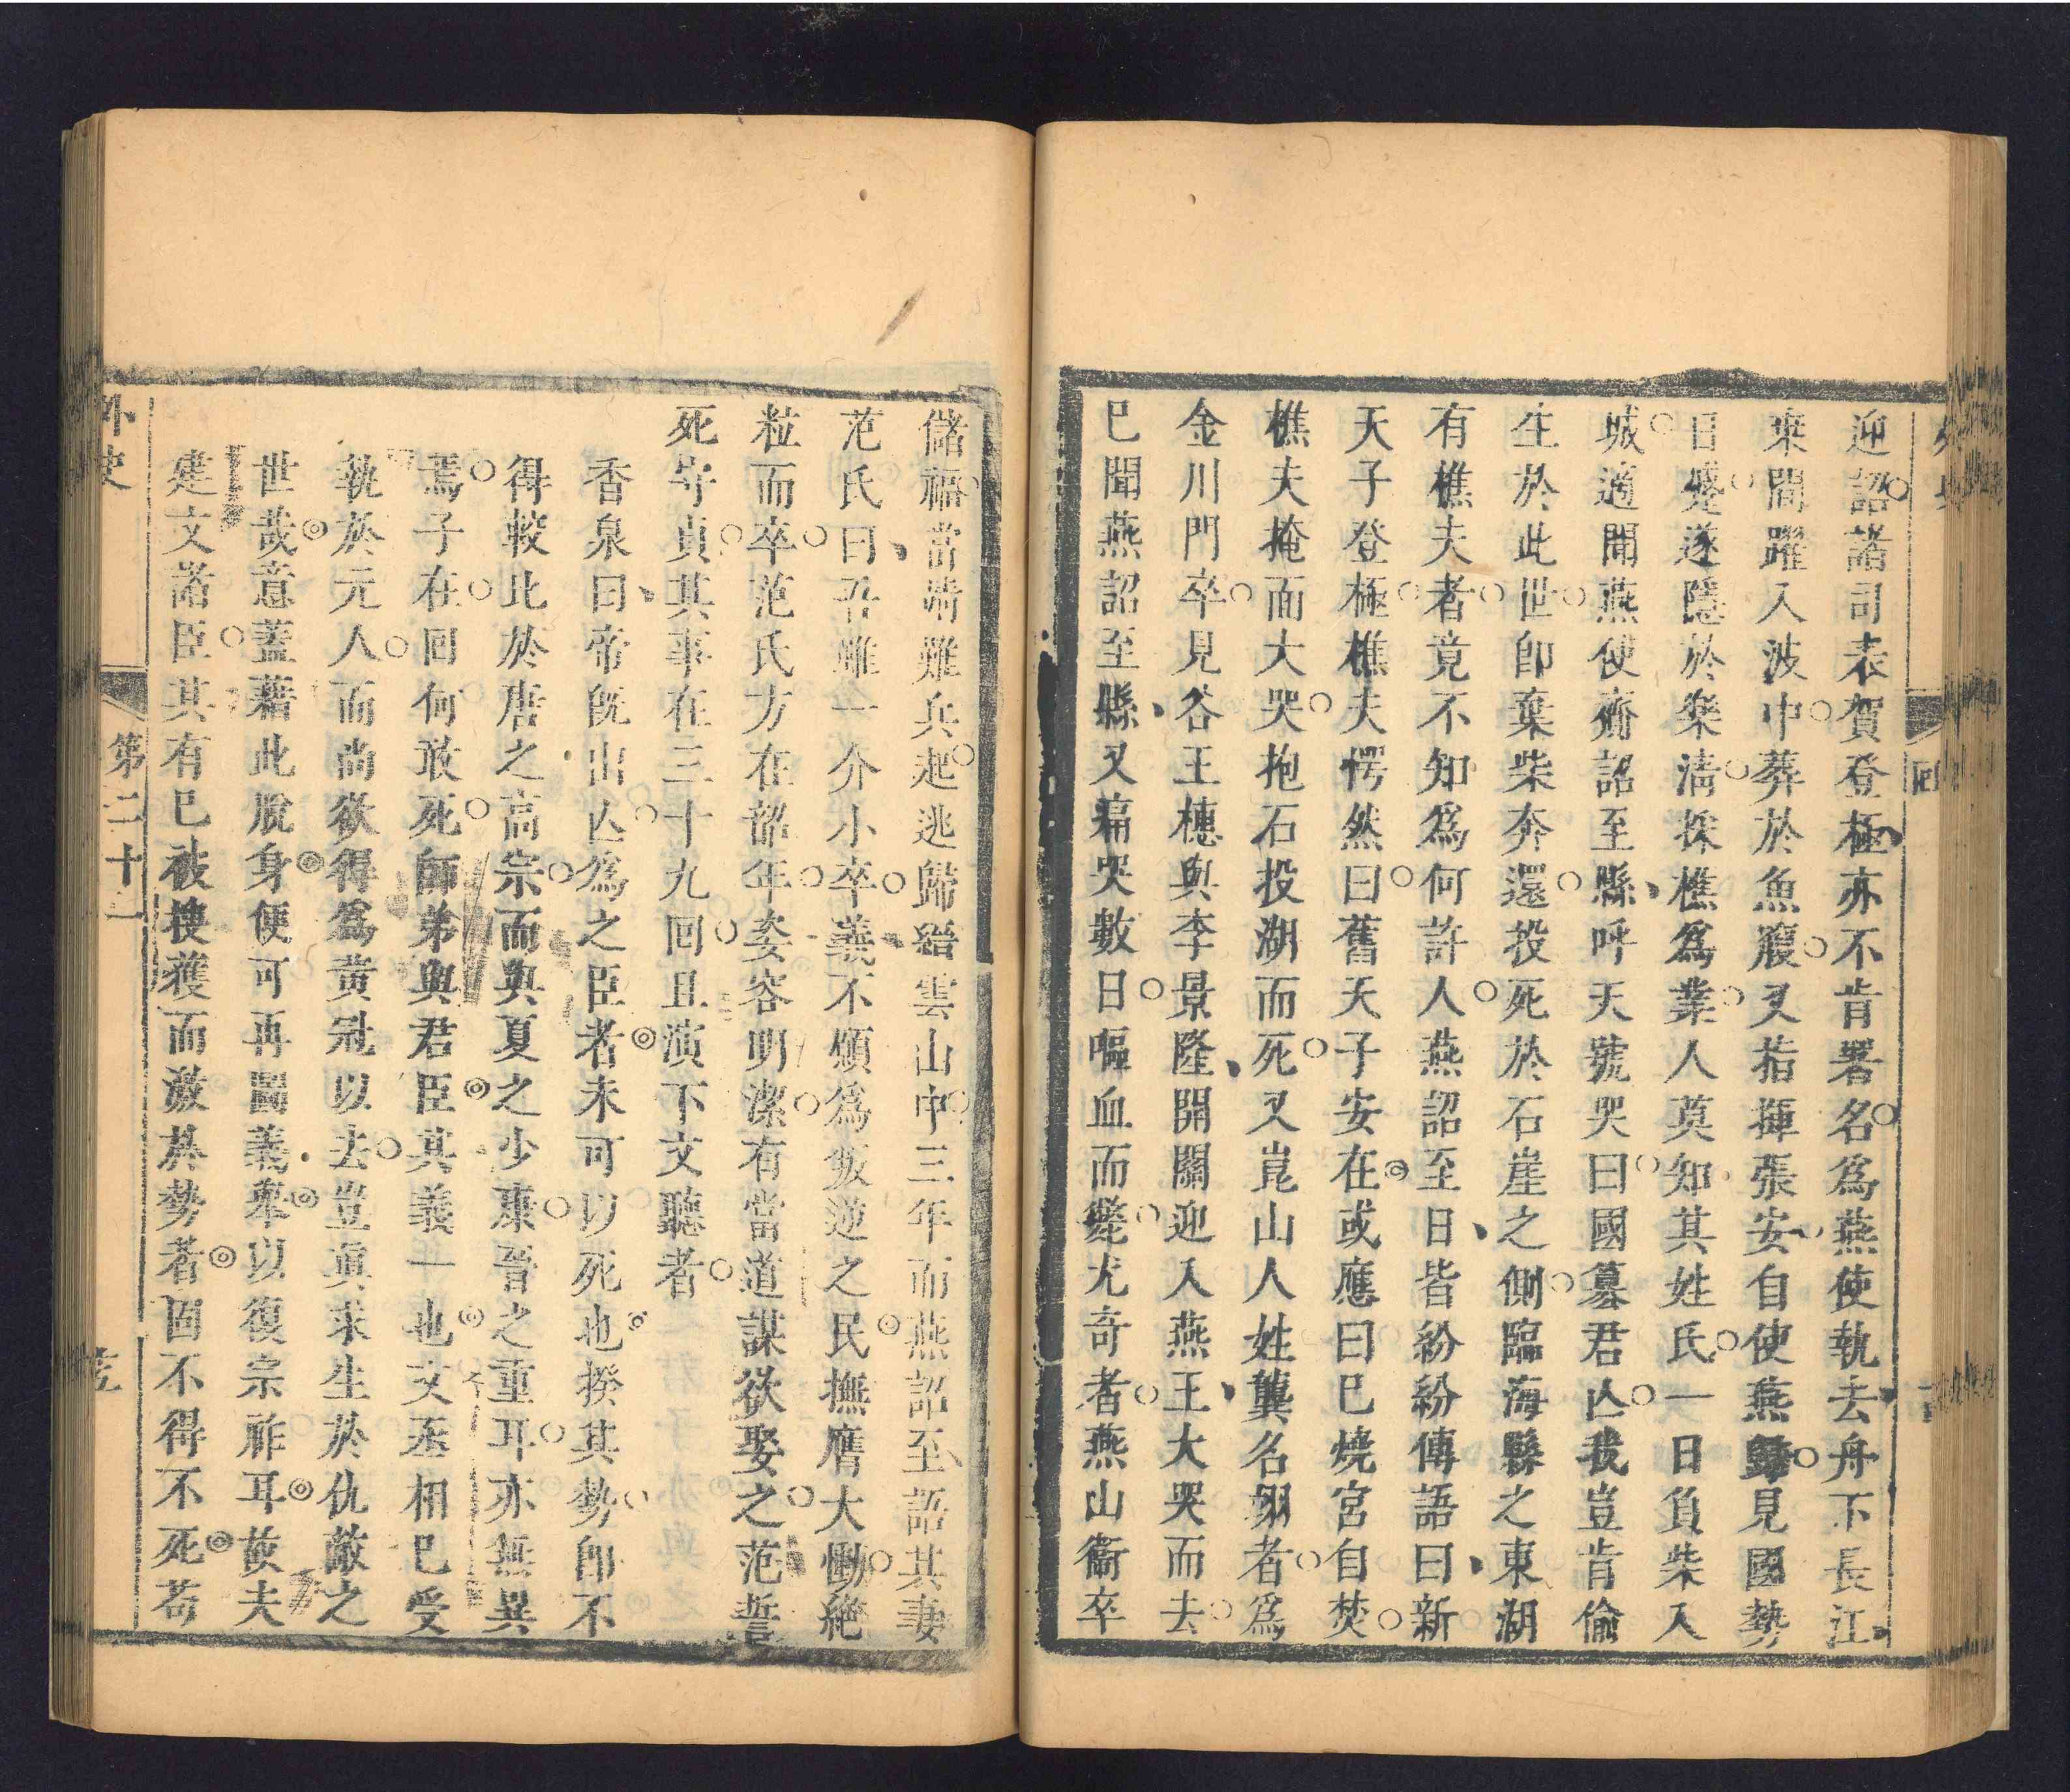 迎詔諸司表賀登極亦不肯署名爲燕使執去舟下長江
乘間躍入波中葬於魚腹又指揮張安自使燕歸見國勢
日蹙遂隱於樂清採樵爲業人莫知其姓氏一日負柴入
城適聞燕使齎詔至縣呼天號哭曰國篡君亾我豈肯偷
生於此世卽棄柴奔還投死於石崖之側臨海縣之東湖
有樵夫者竟不知爲何許人燕詔至日皆紛紛傳語曰新
天子登極樵夫愕然曰舊天子安在或應曰巳燒宮自焚
樵夫掩面大哭抱石投湖而死又崑山人姓龔名翊者爲
金川門卒見谷王橞與李景隆開關迎入燕王大哭而去
巳聞燕詔至縣又痛哭數日嘔血而斃尤奇者燕山衞卒
儲福當靖難兵起逃歸縉雲山中三年而燕詔至語其妻
范氏曰吾雖一介小卒義不願爲叛逆之民撫膺大慟絕
粒而卒范氏方在韶年姿容明潔有當道謀欲娶之范誓
死守貞其事在三十九回且演下文聽者
香泉曰帝旣出亾爲之臣者未可以死也揆其勢卽不
得較此於唐之高宗而與夏之少康晉之重耳亦無異
焉子在回何敢死師弟與君臣其義一也文丞相巳受
執於元人而尚欲得爲黃冠以去豈眞求生於仇敵之
世哉意蓋藉此脫身便可再圖義舉以復宗祚耳故夫
建文諸臣其有巳被擒獲而激於勢者固不得不死苟
外史
第二十一